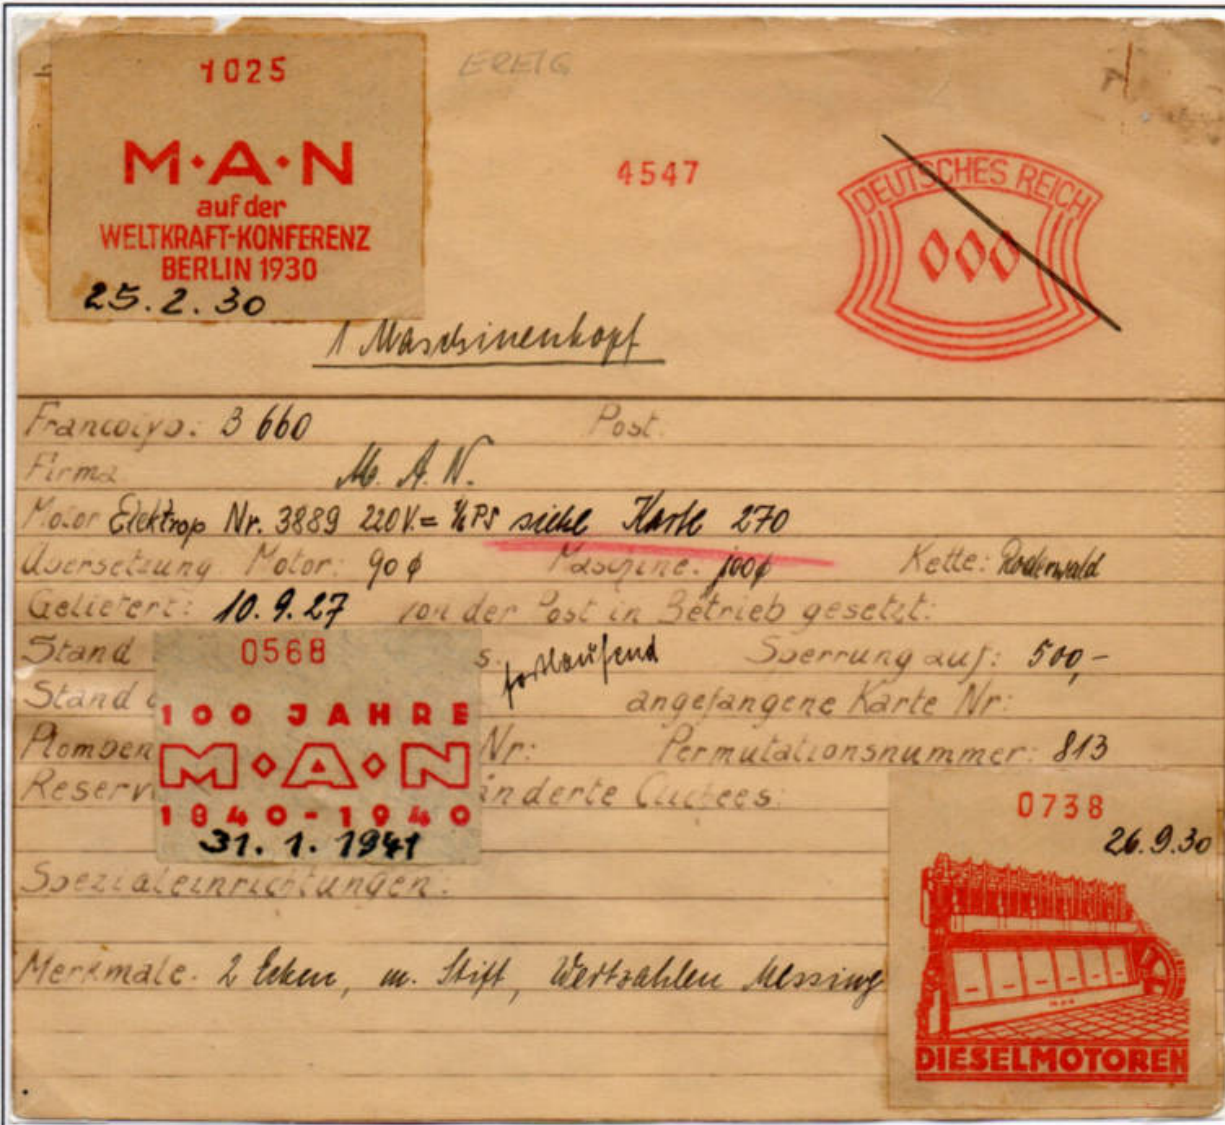 1025
M·A·N
auf der
WELTKRAFT-KONFERENZ
BERLIN 1930
25.2.30
4547
DEUTSCHES REICH
000
1 Maschinenkopf
Francotyp: B 660 Post:
Firma M. A. N.
Motor Elektrop Nr. 3889 220V.= PS siehe Karte 270
Übersetzung Motor: 90 ϕ Maschine: 100 ϕ Kette: Rodenwald
Geliefert: 10.9.27 von der Post in Betrieb gesetzt:
Stand s. fortlaufend Sperrung auf: 500,-
Stand angefangene Karte Nr:
Plomben Nr: Permutationsnummer: 813
Reserv änderte Clichees:
0568
100 JAHRE
M·A·N
1840-1940
31.1.1941
Spezialeinrichtungen:
Merkmale: 2 Ecken, m. Stift, Wertzahlen Messing
0738
26.9.30
DIESELMOTOREN